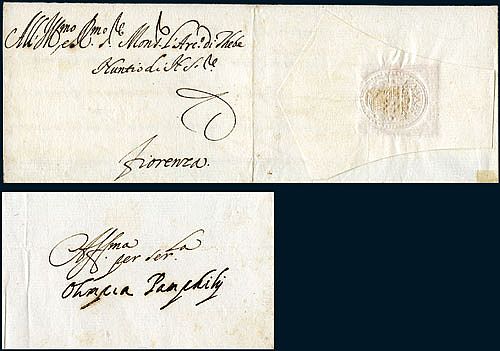 All Ill.mo e R.mo S.re Mons.r l'Arc.o di Thebe
Nuntio di N. S.re
Fiorenza.
Aff.ma
per ser.la
Olimpia Pamphilij